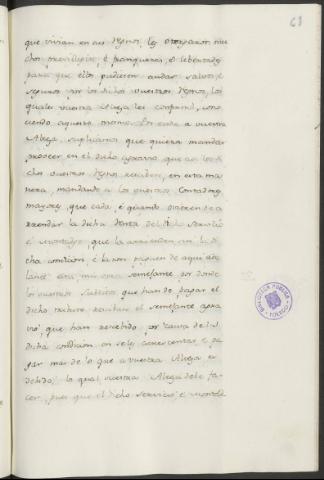 61
que vivian en sus Reynos, les otorgaron mu
chos previllejos, é franquezas, é libertades
para que ellos pudiesen andar salvos, é
seguros por los dichos vuestros Reynos, los
quales vuestra Alteza les confirmó, cono
ciendo aquesto mismo. Por ende a vuestra
Alteza suplicamos que quiera mandar
proveer en el dicho agravio que asi los di
chos vuestros Reynos reciben, en esta ma
nera, mandando a los vuestros Contadores
mayores, que cada, é quando hobieren de a
rrendar la dicha Renta del dicho servicio
é montadgo, que la arrienden con la di
cha condicion, é la non pongan de aqui ade
lante en, mi otra semejante por donde
los vuestros subditos que han de pagar el
dicho tributo resciban el semejante agra
vio que han recebido, por causa del
dicha condicion en seles acrecentar é pa
gar mas de lo que a vuestra Alteza es
debido, lo qual vuestra Alteza debe fa
cer, pues que el dicho servicio é montad
BIBLIOTECA PUBLICA
TOLEDO